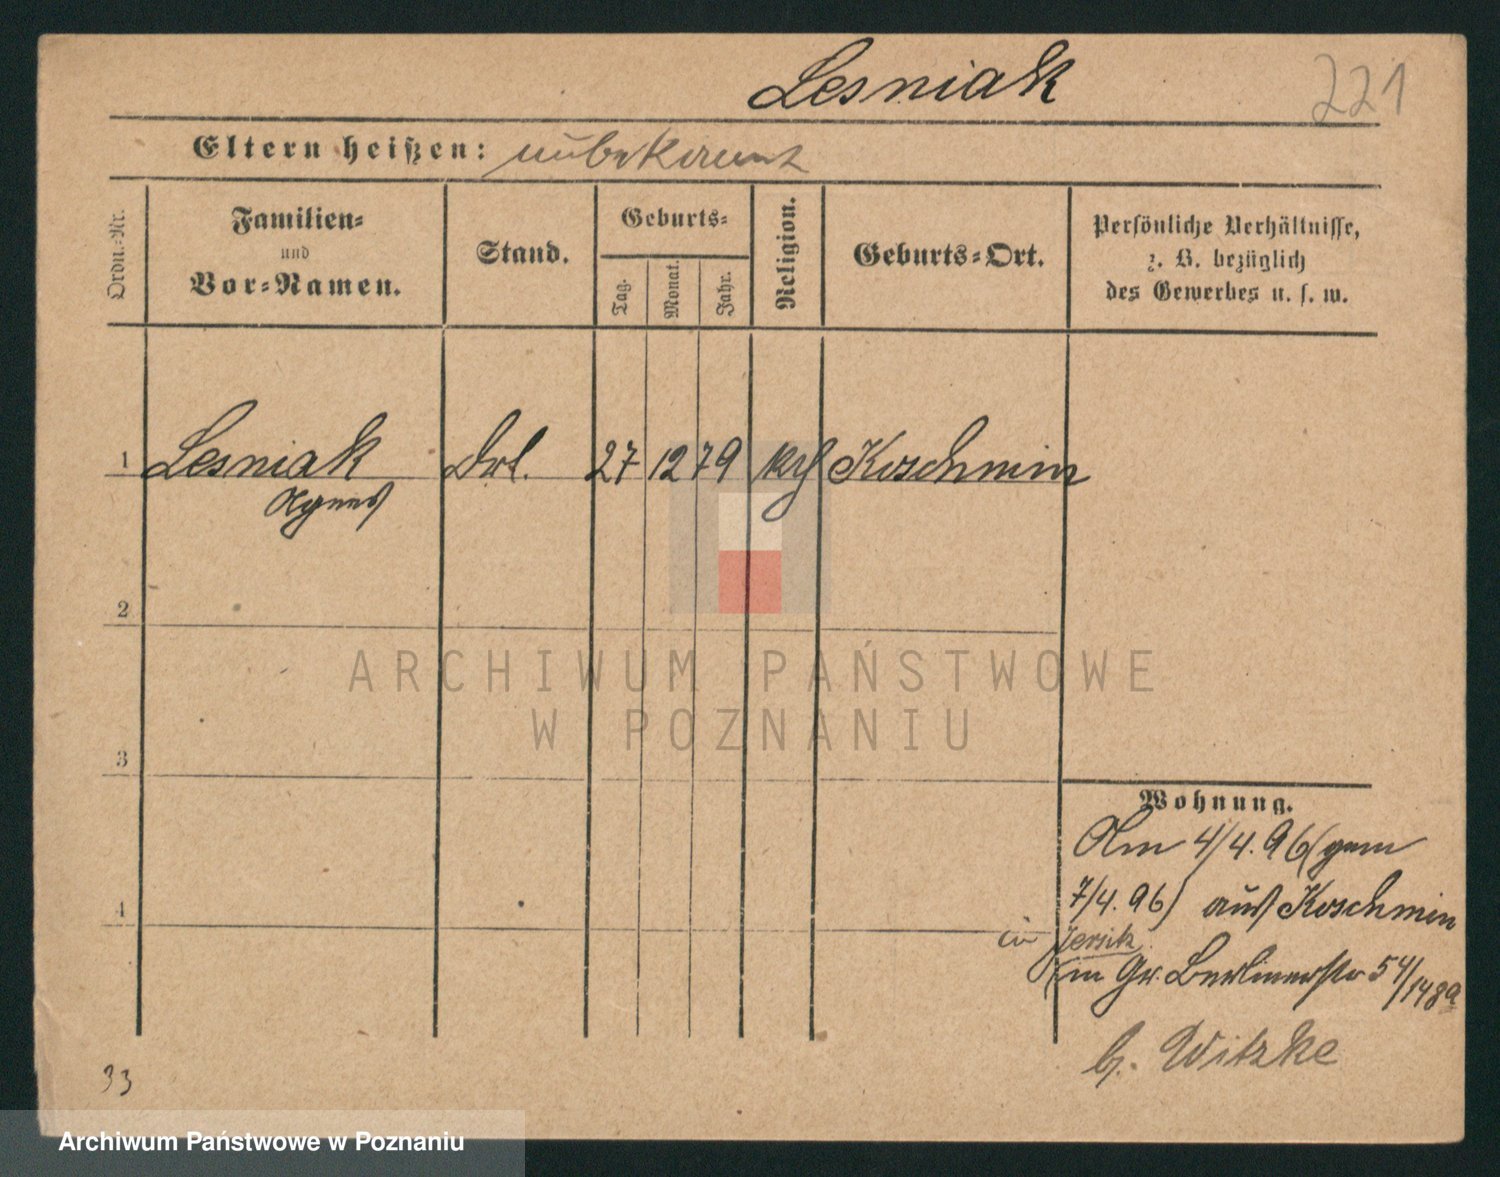 Lesniak
221
Eltern heißen: unbekannt
Ordn.-Nr.
Familien-
und
Vor-Namen.
Stand.
Geburts-
Tag.
Monat.
Jahr.
Religion.
Geburts-Ort.
Persönliche Verhältnisse,
z. B. bezüglich
des Gewerbes u. s. w.
1 Lesniak 27 12 79 Koschmin
Agnes
2
ARCHIWUM PAŃSTWOWE
W POZNANIU
3
Wohnung.
Am 4/4. 96 (gem
7/4. 96) aus Koschmin
4
in Jersitz
Gr. Berlinerstr 54/148a
b. Witzke
33
Archiwum Państwowe w Poznaniu